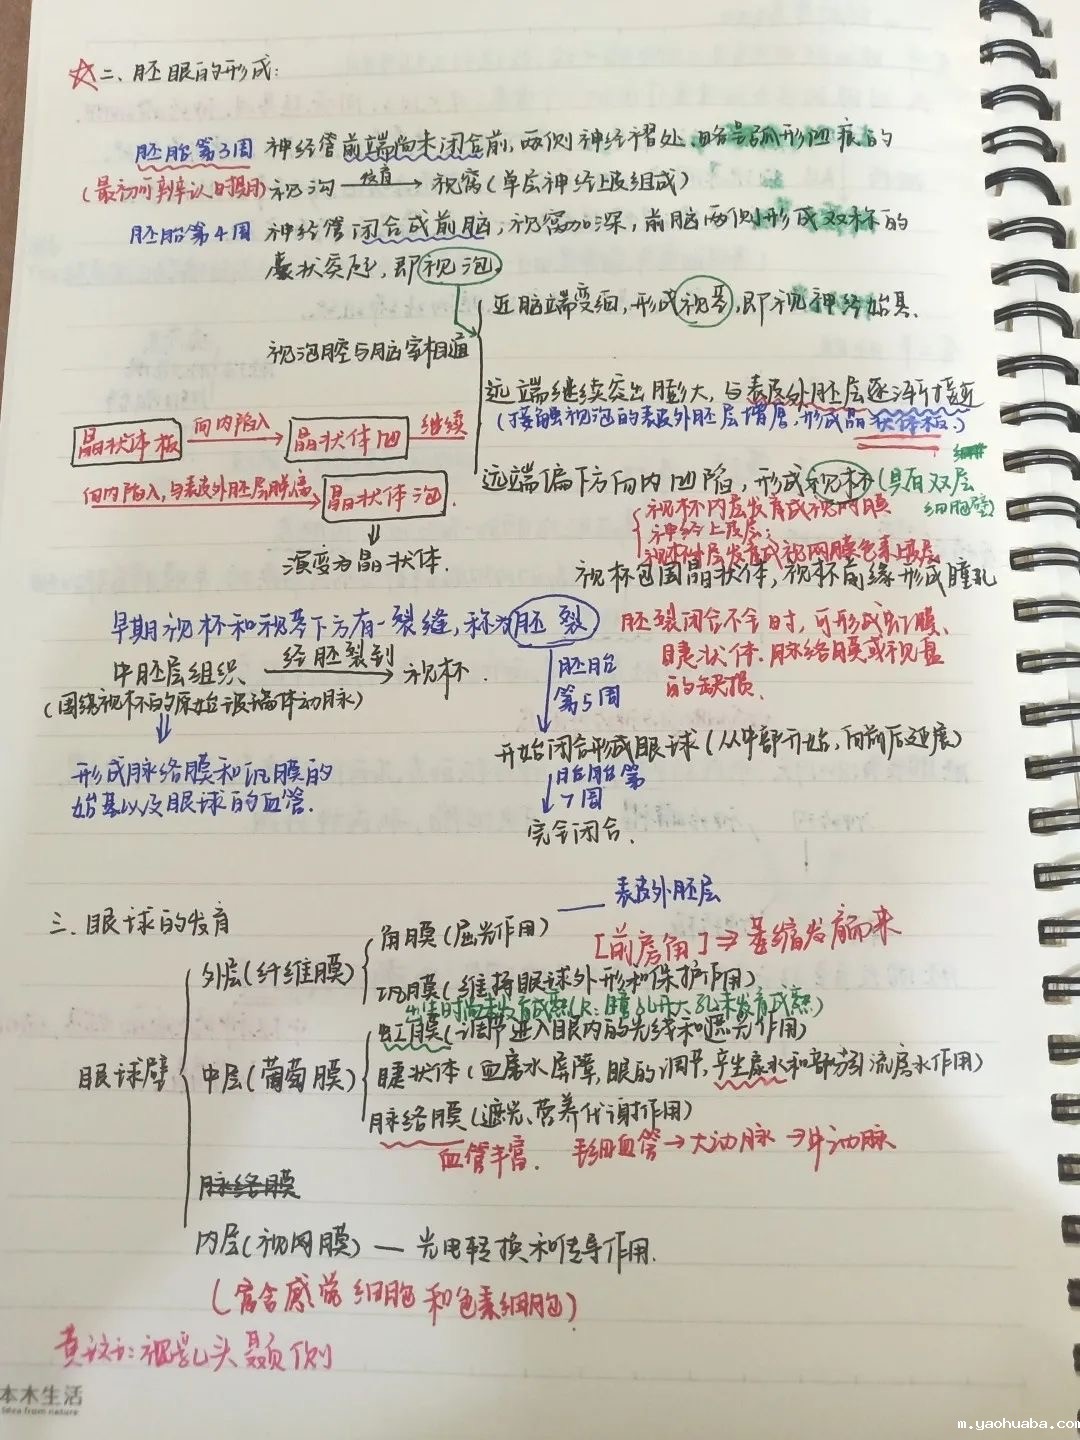 ☆二、胚眼的形成:
胚胎第3周 神经管前端尚未闭合前,两侧神经褶处,略呈弧形凹痕的
(最初可辨认时期)视沟 发育→ 视窝(单层神经上皮组成)
胚胎第4周 神经管闭合成前脑,视窝加深,前脑两侧形成双称的
囊状突起,即视泡。
近脑端变细,形成视茎,即视神经始基.
视泡腔与脑室相通
远端继续突出膨大,与表皮外胚层逐渐接近
(接触视泡的表皮外胚层增厚,形成晶状体板.)
晶状体板 向内陷入→ 晶状体凹 继续
远端偏下方向内凹陷,形成视杯(具有双层细胞壁)
但内陷入,与表皮外胚层脱离→ 晶状体泡.
视杯内层发育成视网膜
神经上皮层;
视杯外层发育成视网膜色素上皮层
演变为晶状体.
视杯包围晶状体,视杯前缘形成瞳孔
早期视杯和视茎下方有一裂缝,称为胚裂
胚裂闭合不全时,可形成虹膜、
睫状体.脉络膜或视盘
的缺损.
中胚层组织 经胚裂到→ 视杯.
(围绕视杯的原始玻璃体动脉)
胚胎
第5周
开始闭合形成眼球(从中部开始,向前后延展)
形成脉络膜和巩膜的
始基以及眼球的血管.
胚胎第
7周
完全闭合.
三.眼球的发育
表皮外胚层
角膜(屈光作用)
[前房角]⇒萎缩发育而来
外层(纤维膜)
巩膜(维持眼球外形和保护作用)
虹膜(调节进入眼内的光线和遮光作用)
眼球壁
中层(葡萄膜)
睫状体(血房水屏障,眼的调节,产生房水和部分引流房水作用)
脉络膜(遮光、营养代谢作用)
血管丰富. 毛细血管→大动脉→中动脉
脉络膜
内层(视网膜)—光电转换和传导作用.
(富含感觉细胞和色素细胞)
黄斑:视乳头颞侧
本木生活
Idea from nature
m.yaohuaba.com